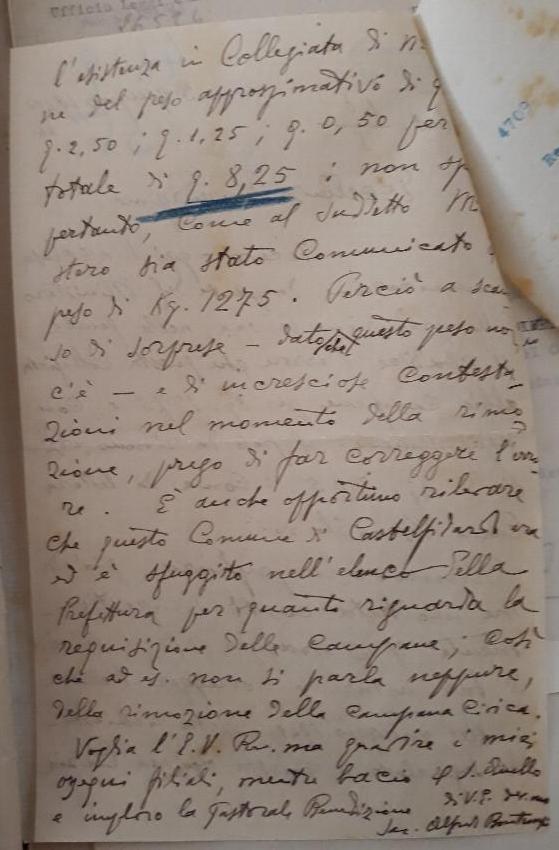 Ufficio Leggi
l'esistenza in Collegiata di
ne del peso approssimativo di q
q. 2,50 ; q. 1,25 ; q. 0,50 per
totale di q. 8,25 : non sp
pertanto, come al suddetto M
stero sia stato comunicato
peso di Kg. 1275 . Perciò a scan
so di sorprese – dato che questo peso no
c'è – e di incresciose contesta-
zioni nel momento della rimo
zione, prego di far correggere l'erro
re . È anche opportuno rilevare
che questo Comune di Castelfidardo era
ed è sfuggito nell'elenco della
Prefettura per quanto riguarda la
requisizione delle campane ; così
che ad es. non si parla neppure,
della rimozione della campana civica.
Voglia l'E. V. Rev.ma gradire i miei
ossequi filiali, mentre bacio il S. Anello
e imploro la Pastorale Benedizione
di V. E. dev.mo
Sac. Alfredo
4702